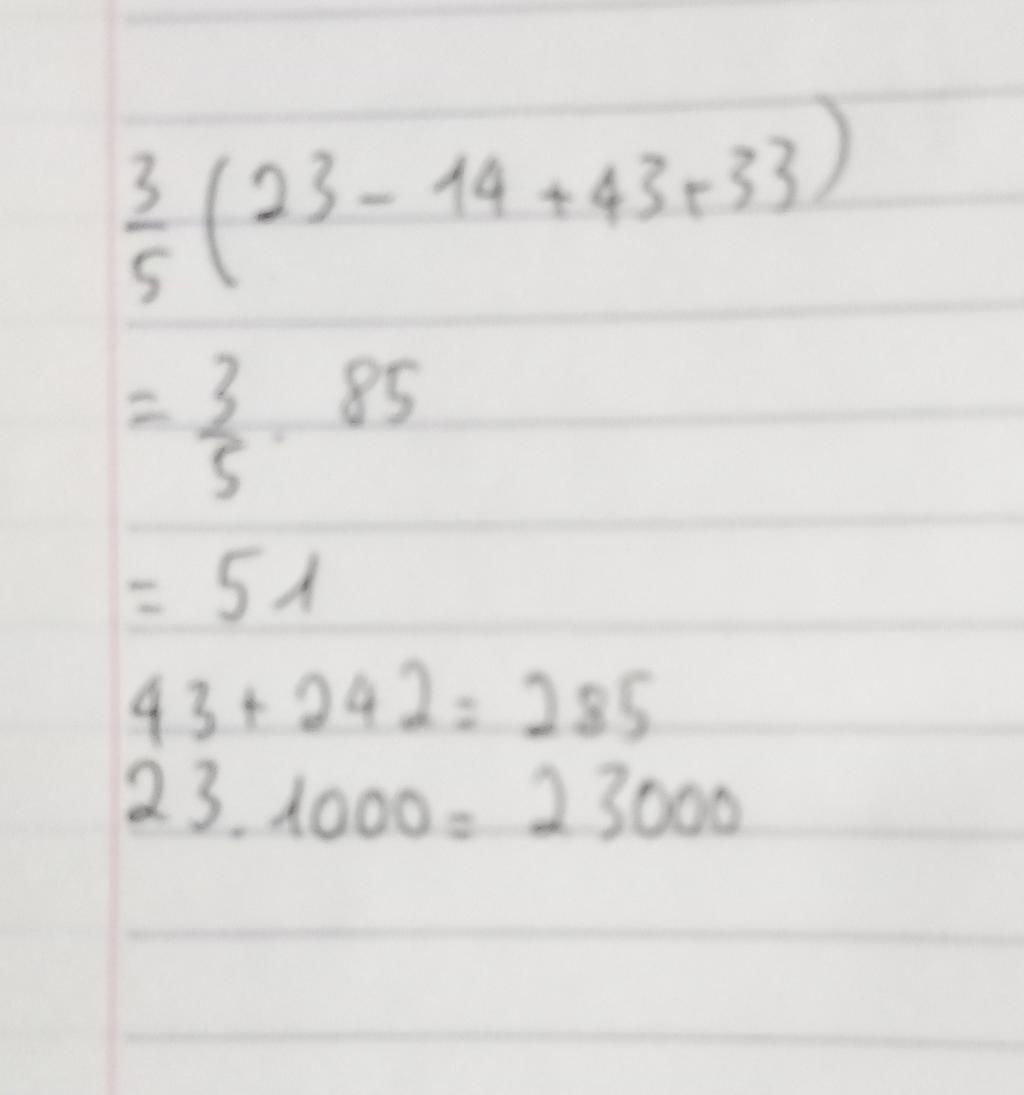 3/5 (23 - 14 + 43 + 33)
= 3/5 . 85
= 51
43 + 242 = 285
23 . 1000 = 23000